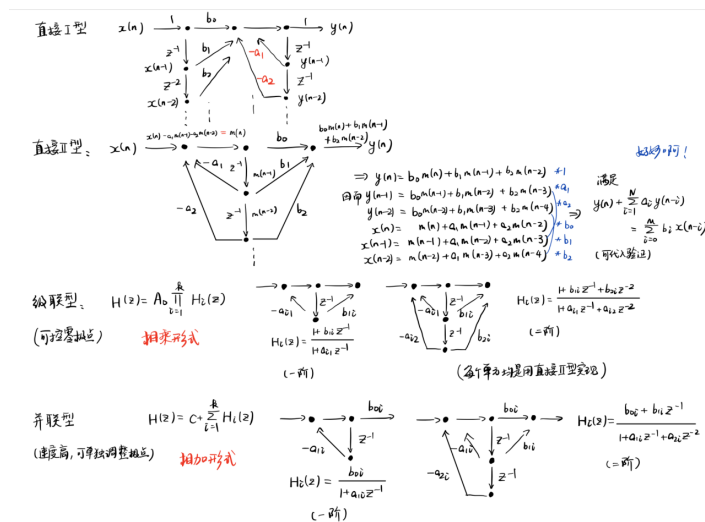 直接Ⅰ型 x(n) 1 b₀ 1 y(n)
z⁻¹ b₁ -a₁ z⁻¹
x(n-1) b₂ y(n-1)
z⁻² -a₂ z⁻¹
x(n-2) y(n-2)
直接Ⅱ型: x(n) x(n)-a₁m(n-1)-a₂m(n-2)=m(n) b₀ b₀m(n)+b₁m(n-1)+b₂m(n-2) y(n)
-a₁ z⁻¹ m(n-1) b₁
-a₂ z⁻¹ m(n-2) b₂
⇒ y(n)= b₀m(n)+b₁m(n-1)+b₂m(n-2) *1
因而 y(n-1)= b₀m(n-1)+b₁m(n-2)+b₂m(n-3) *a₁
y(n-2)= b₀m(n-2)+b₁m(n-3)+b₂m(n-4) *a₂
x(n)= m(n)+a₁m(n-1)+a₂m(n-2) *b₀
x(n-1)= m(n-1)+a₁m(n-2)+a₂m(n-3) *b₁
x(n-2)= m(n-2)+a₁m(n-3)+a₂m(n-4) *b₂
⇒ 满足
y(n)+∑_{i=1}^{N} aᵢy(n-i)
=∑_{i=0}^{M} bᵢx(n-i)
(可代入验证)
级联型: H(z)=A₀∏_{i=1}^{k} Hᵢ(z)
(可控零极点) 相乘形式
-a₁ᵢ z⁻¹ b₁ᵢ
Hᵢ(z)=(1+b₁ᵢz⁻¹)/(1+a₁ᵢz⁻¹)
(一阶)
-a₁ᵢ z⁻¹ b₁ᵢ
-a₂ᵢ z⁻¹ b₂ᵢ
Hᵢ(z)=(1+b₁ᵢz⁻¹+b₂ᵢz⁻²)/(1+a₁ᵢz⁻¹+a₂ᵢz⁻²)
(二阶)
(每个单方块是用直接Ⅱ型实现)
并联型 H(z)=C+∑_{i=1}^{k} Hᵢ(z)
(速度高,可单独调整极点) 相加形式
b₀ᵢ
-a₁ᵢ z⁻¹
Hᵢ(z)=b₀ᵢ/(1+a₁ᵢz⁻¹)
(一阶)
b₀ᵢ
-a₁ᵢ z⁻¹ b₁ᵢ
-a₂ᵢ z⁻¹
Hᵢ(z)=(b₀ᵢ+b₁ᵢz⁻¹)/(1+a₁ᵢz⁻¹+a₂ᵢz⁻²)
(二阶)